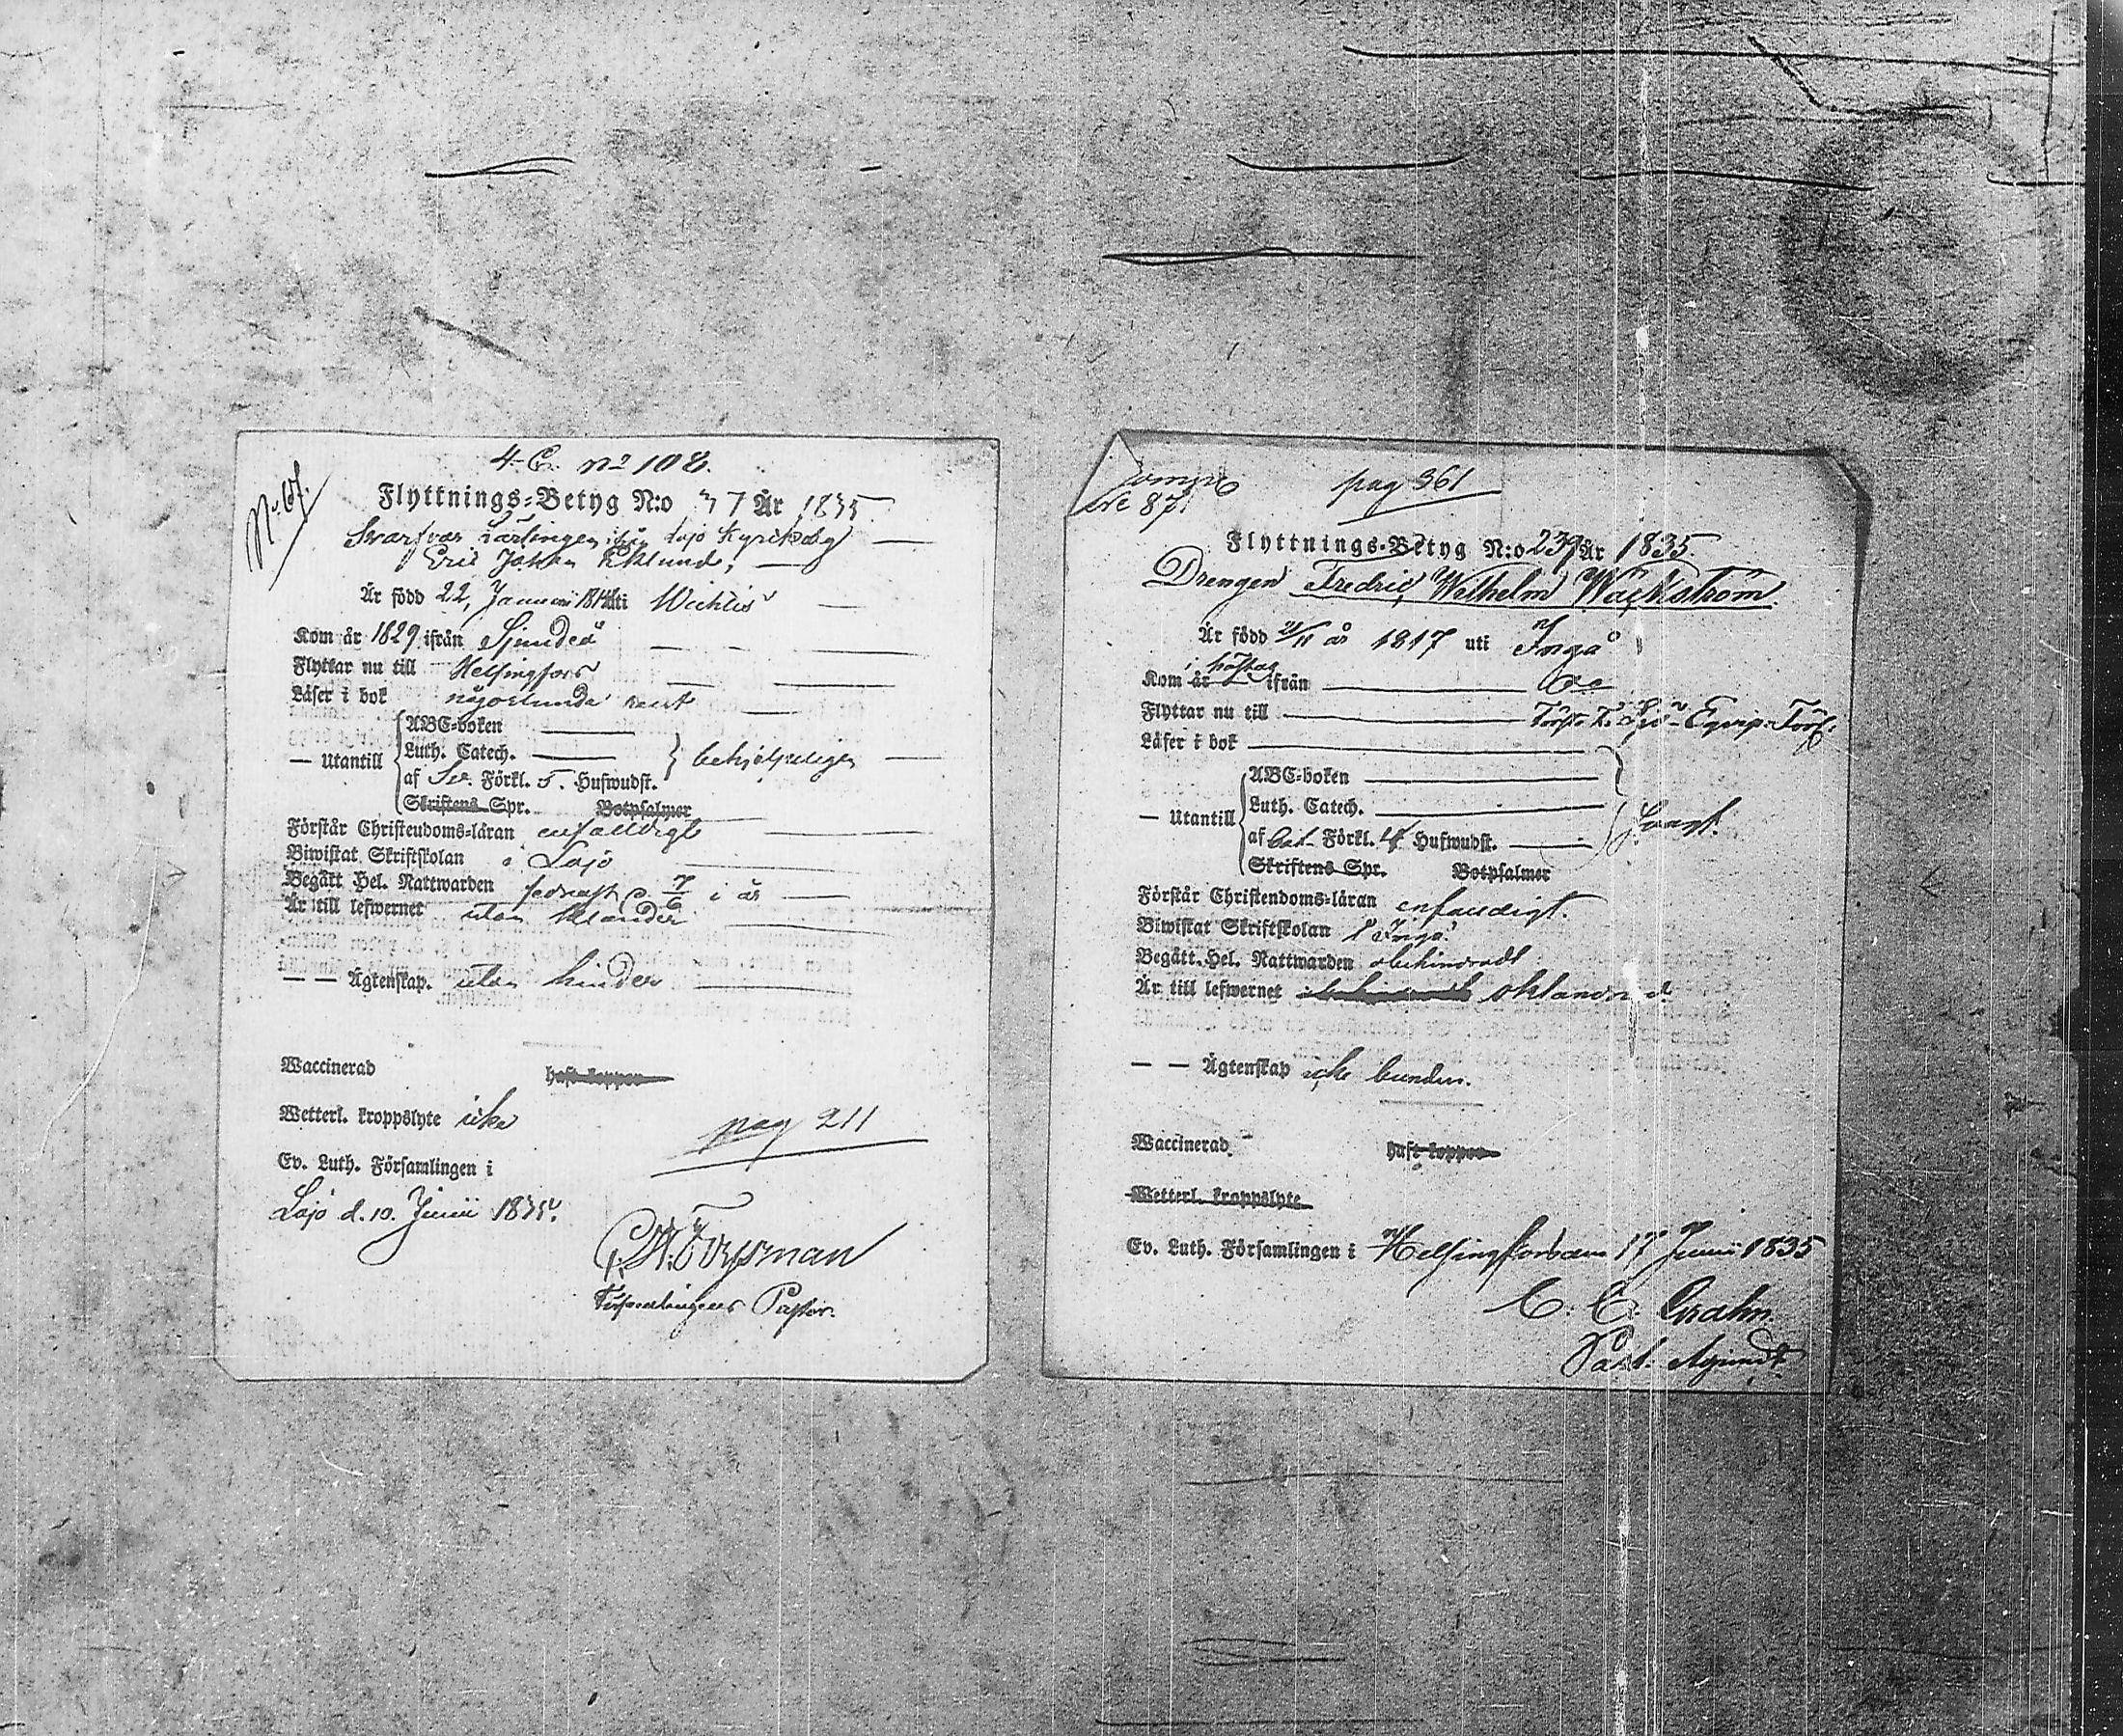 4. C. nº 108.
No. 67.
Flyttnings-Betyg N:o 37 År 1835
Svarfvar Lärlingen ifrån Lojo Kyrkoby
Eric Johan Eklund,
Är född 22, Januari uti Wichtis
Kom år 1829 ifrån Sjundeå
Flyttar nu till Helsingfors
Läser i bok någorlunda rent
— Utantill
ABC-boken
Luth. Catech.
af Sv. Förkl. 5. Hufwudst.
behjelpeligen
Skriftens Spr. Botpsalmer
Förstår Christendoms-läran enfalldigt
Biwistat Skriftskolan i Lojo
Begått Hel. Nattwarden sednast d. 7/6 i år
Är till lefwernet utan klander
— — Ägtenskap. utan hinder
Waccinerad haft koppor
Wetterl. kroppslyte icke
pag 211
Ev. Luth. Församlingen i
Lojo d. 10. Junii 1835.
Forsman
Församlingens Pastor.
pag 361
87.
Flyttnings-Betyg N:o 239 År 1835.
Drengen Fredric Wilhelm Wäckström.
Är född 21/11 år 1817 uti Ingå
i höstas
Kom år ifrån
Flyttar nu till Equip.
Läser i bok
— Utantill
ABC-boken
Luth. Catech.
af Förkl. 4 Hufwudst.
Svagt.
Skriftens Spr. Botpsalmer
Förstår Christendoms-läran enfaldigt.
Biwistat Skriftskolan i Ingå.
Begått Hel. Nattwarden obehindradt
Är till lefwernet oklandrad
— — Ägtenskap icke bunden.
Waccinerad haft koppor
Wetterl. kroppslyte
Ev. Luth. Församlingen i Helsingfors den 17 Junii 1835
C. C. Grahn.
Past. Adjunct.